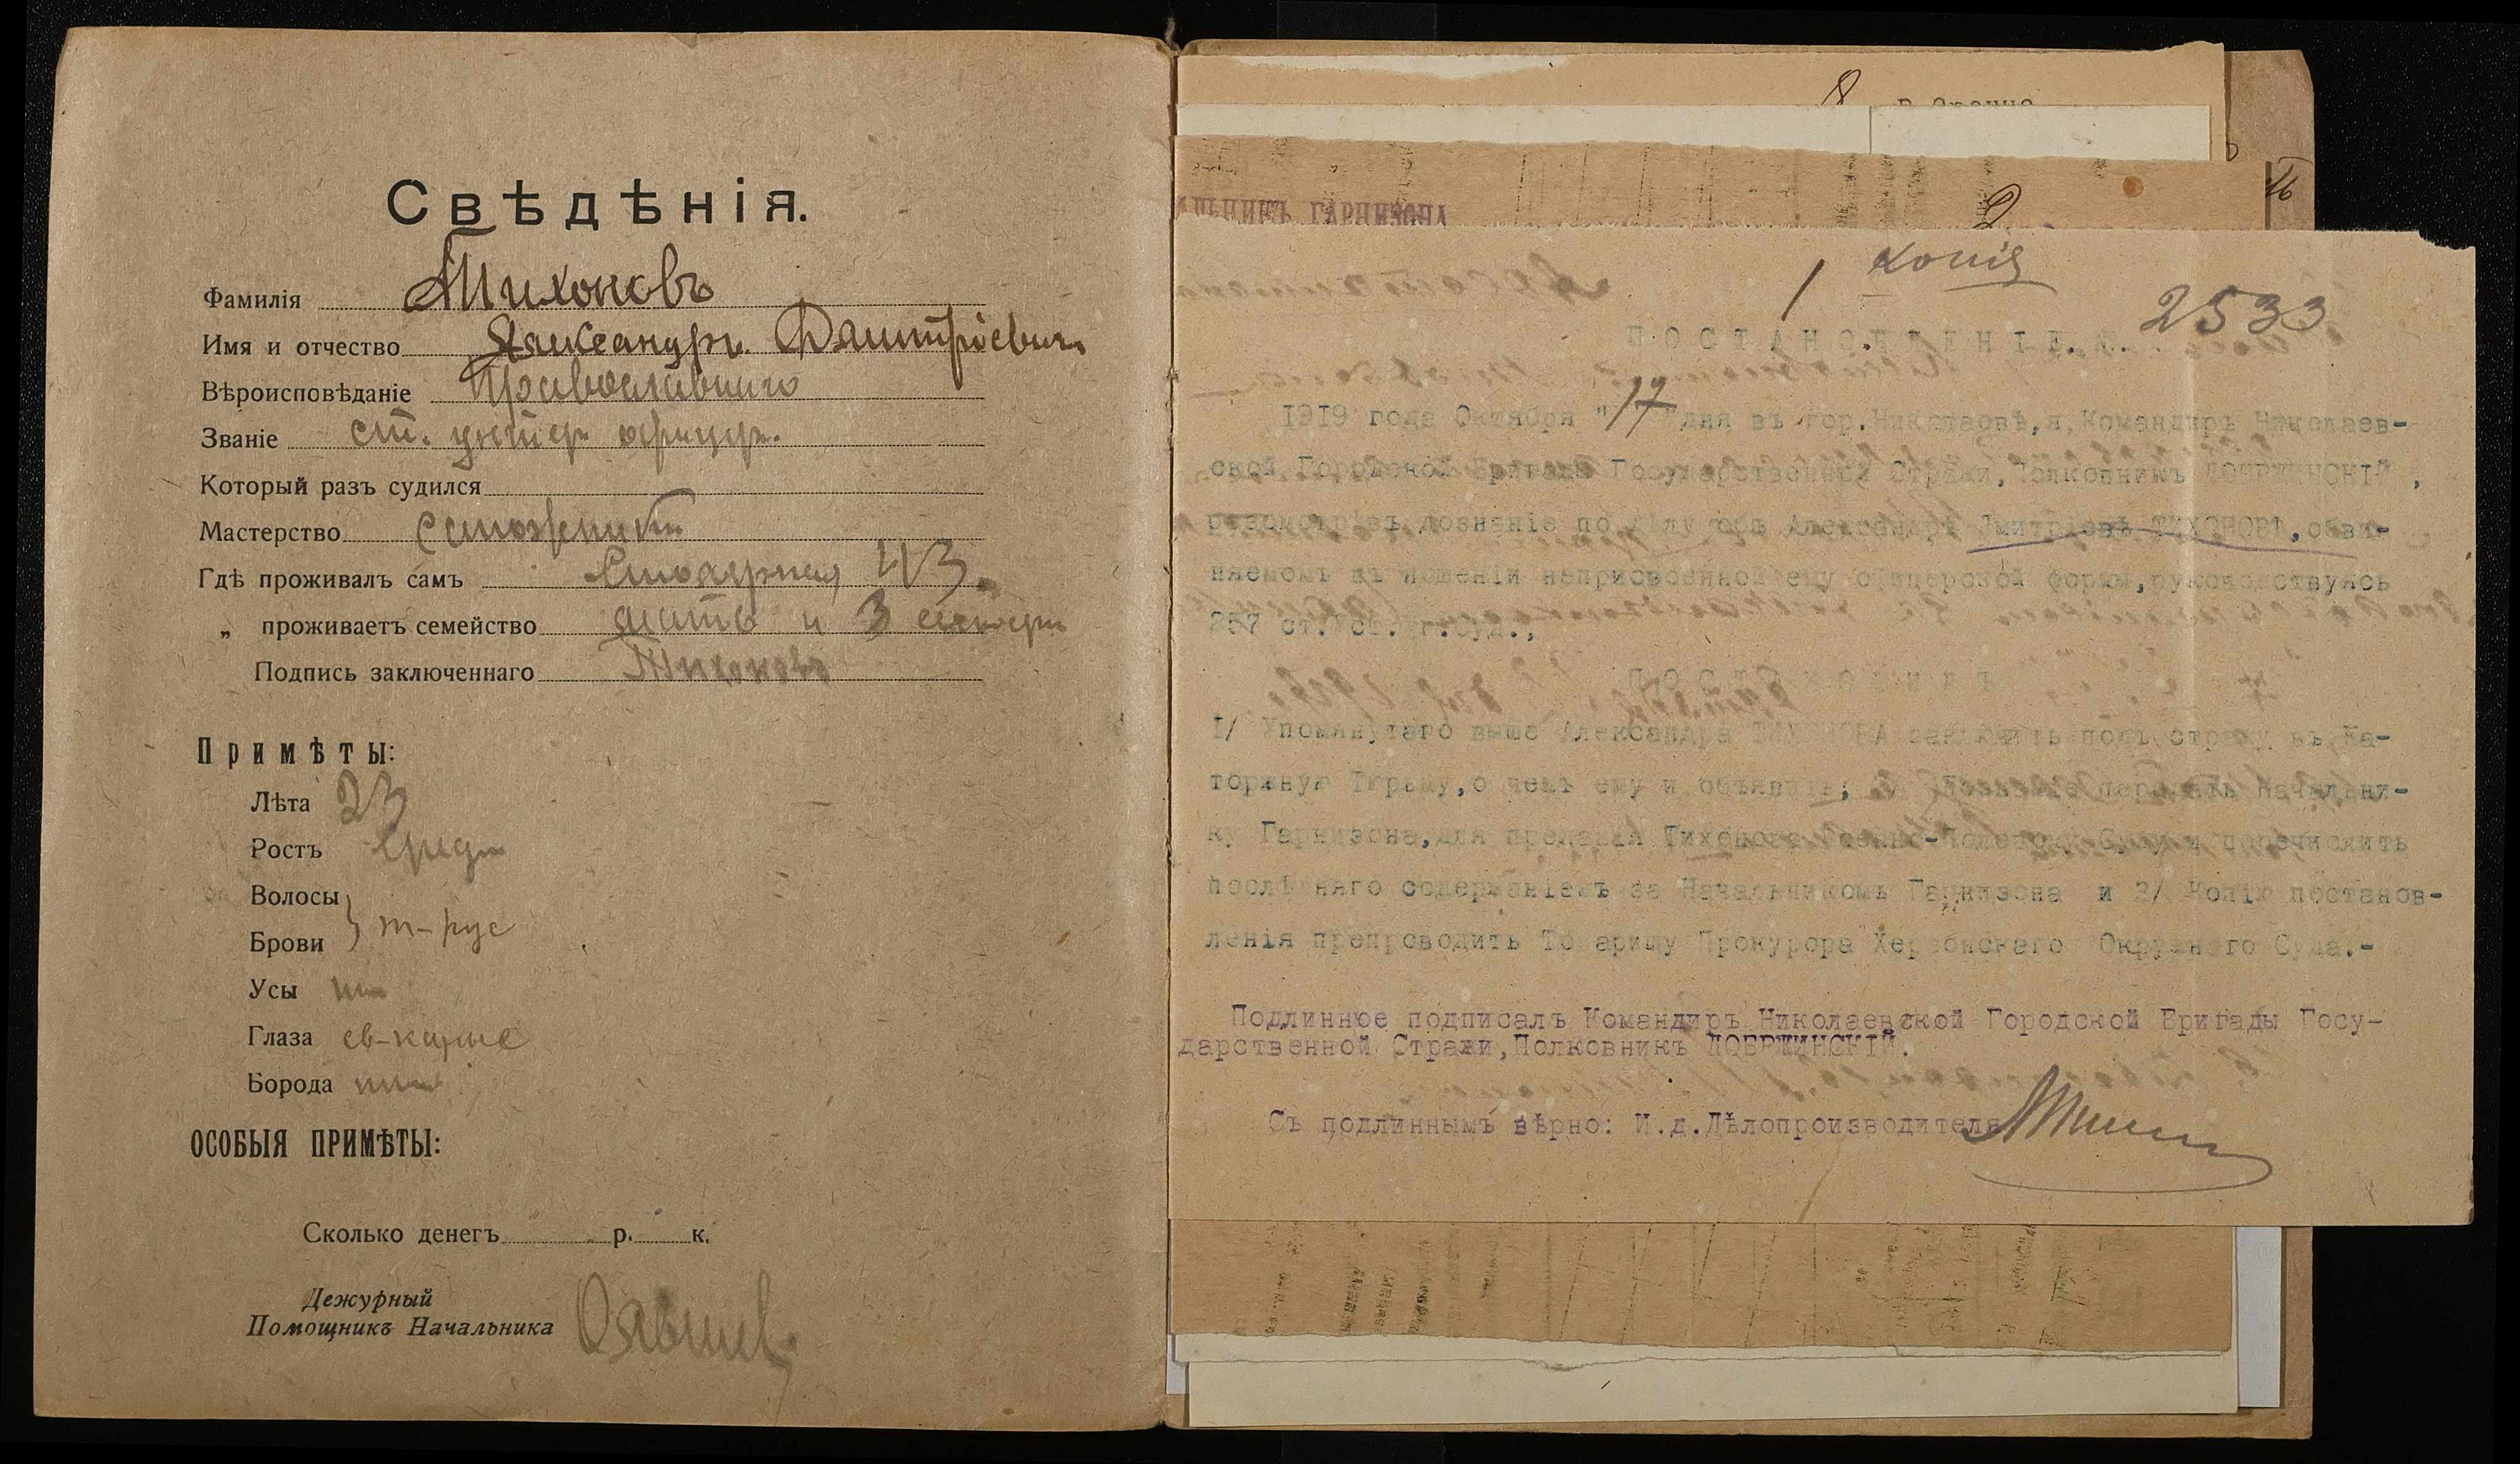 Свѣдѣнія.
Фамилія Тихоновъ
Имя и отчество Александръ Дмитріевичъ
Вѣроисповѣданіе Православнаго
Званіе ст. унтер офицер.
Который разъ судился
Мастерство
Гдѣ проживалъ самъ 43
„ проживаетъ семейство мать и 3 сестры
Подпись заключеннаго Тихоновъ
Примѣты:
Лѣта 23
Ростъ средн
Волосы
Брови т-рус
Усы
Глаза св-карые
Борода
ОСОБЫЯ ПРИМѢТЫ:
Сколько денегъ р. к.
Дежурный
Помощникъ Начальника
8
2
АЛЬНИКЪ ГАРНИЗОНА
1 Копія
2533
ПОСТАНОВЛЕНІЕ.
1919 года Октября "17" дня въ гор.Николаевѣ,я,Командиръ Николаев-
ской Городской Бригады Государственной Стражи,Полковникъ ДОБРЖИНСКІЙ,
разсмотрѣвъ дознаніе по дѣлу объ Александрѣ Дмитріевѣ ТИХОНОВѢ,обви-
няемомъ въ ношеніи неприсвоенной ему офицерской формы,руководствуясь
257 ст. Уст. Уг.Суд.,
ПОСТАНОВИЛЪ
I/ Упомянутаго выше Александра ТИХОНОВА заключить подъ стражу въ Ка-
торжную Тюрьму,о чемъ ему и объявить; 2/ Дознаніе передать Начальни-
ку Гарнизона,для преданія Тихонова Военно-Полевому Суду и перечислить
послѣдняго содержаніемъ за Начальникомъ Гарнизона и 3/ Копію постанов-
ленія препроводить Товарищу Прокурора Херсонскаго Окружного Суда.-
Подлинное подписалъ Командиръ Николаевской Городской Бригады Госу-
дарственной Стражи,Полковникъ ДОБРЖИНСКІЙ.
Съ подлиннымъ вѣрно: И.д.Дѣлопроизводителя